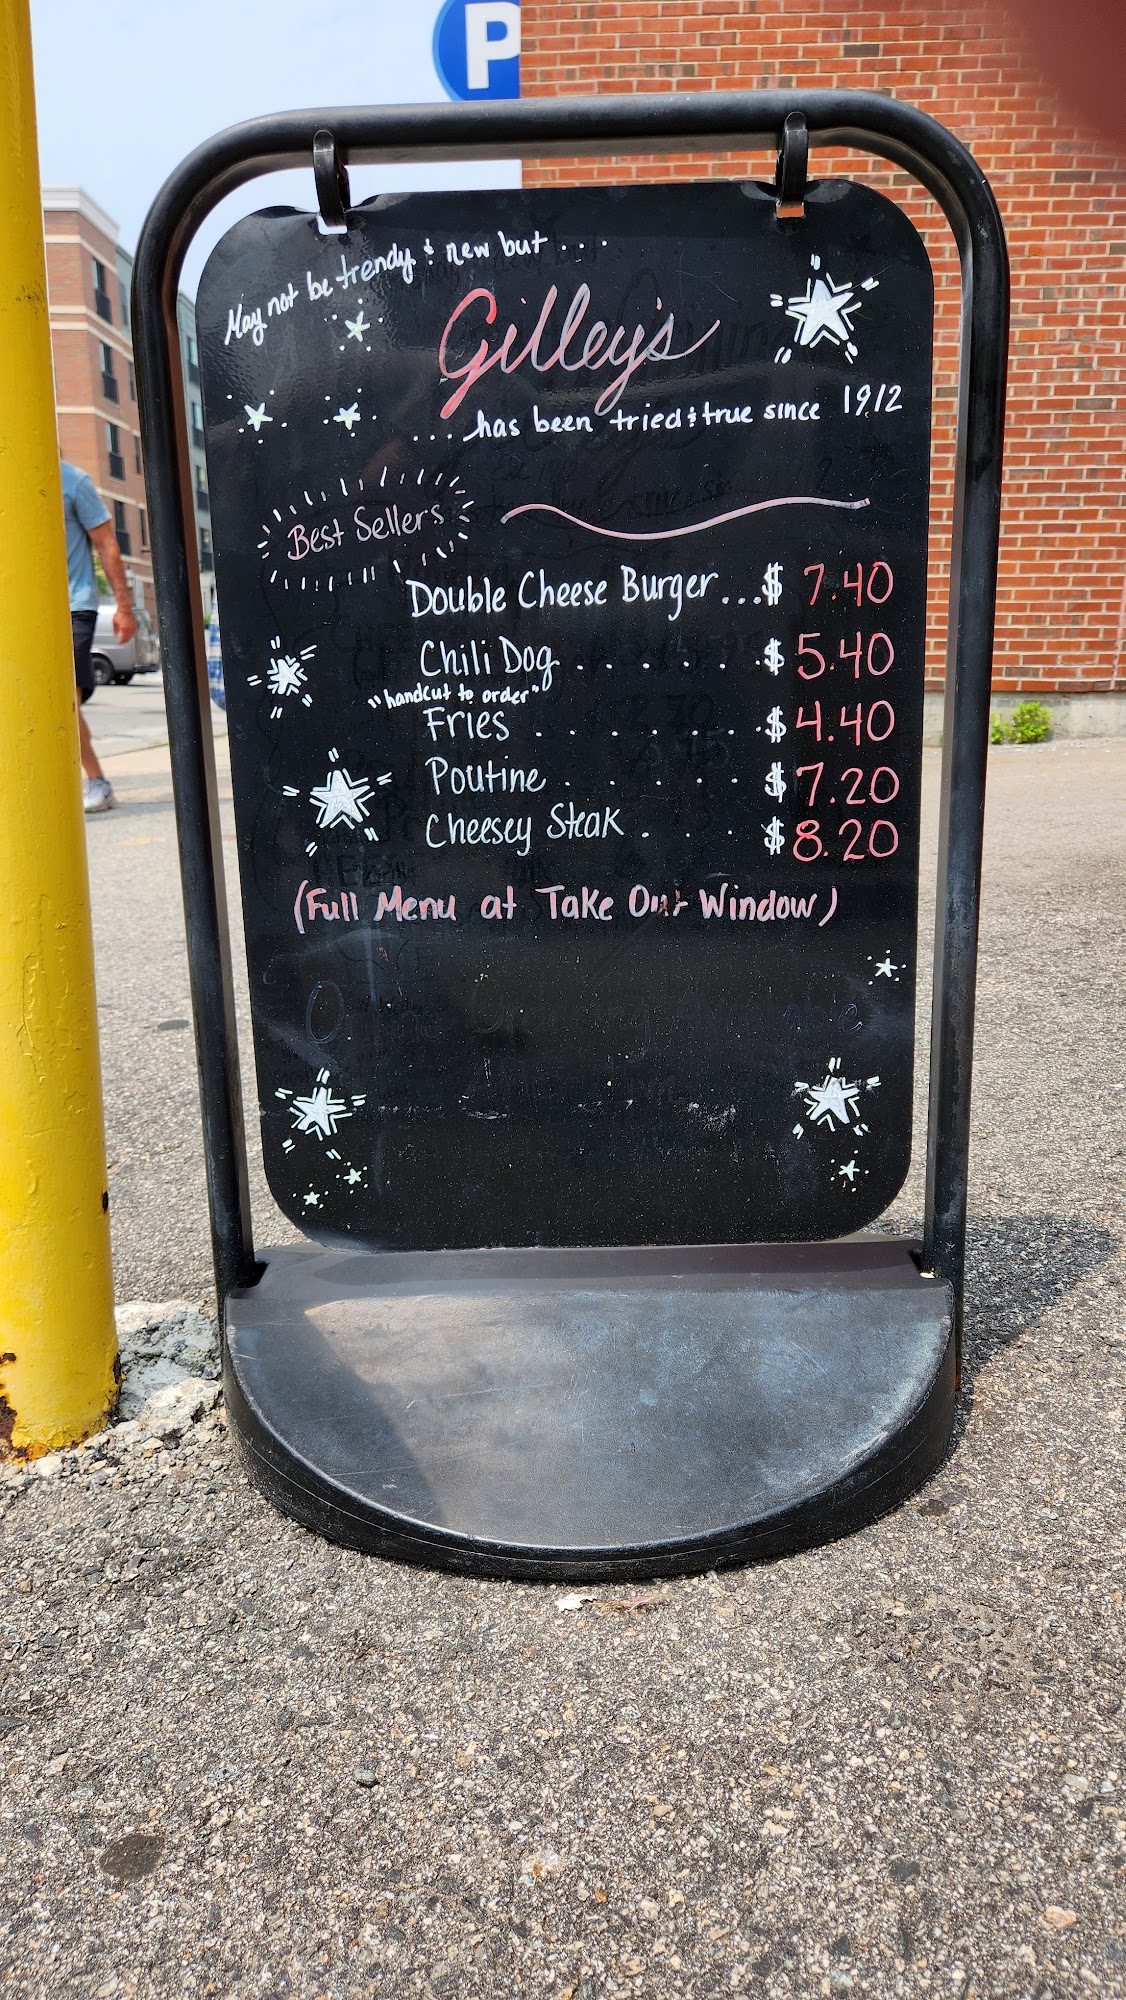 P
May not be trendy & new but...
Gilley's
....has been tried & true since 1912
Best Sellers
Double Cheese Burger...$ 7.40
Chili Dog . . . . . . . $ 5.40
"handcut to order"
Fries . . . . . . . $ 4.40
Poutine . . . . . . $ 7.20
Cheesey Steak . . . . $ 8.20
(Full Menu at Take Out Window)